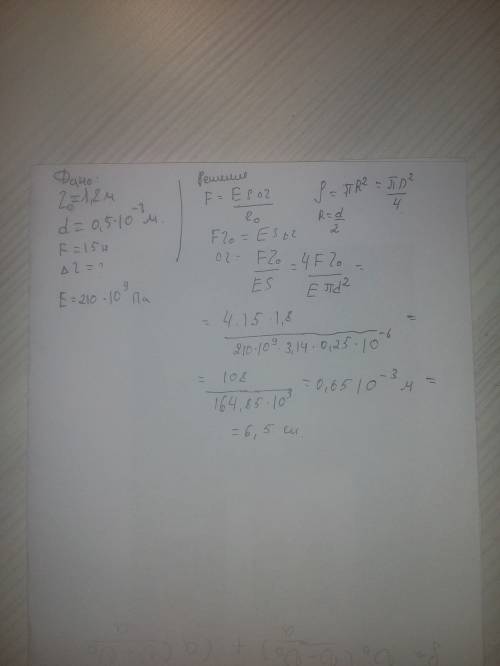 Дано:
l₀=1,2м
d = 0,5·10⁻³ м.
F = 15 н
Δl = ?
E = 210 · 10⁹ Па
Решение
F = ESΔl / l₀
S = πR² = πD²/4
R = d/2
Fl₀ = ESΔl
Δl = Fl₀/ES = 4Fl₀/Eπd² =
= 4·15·1,8 / 210·10⁹·3,14·0,25·10⁻⁶ =
= 108 / 164,85·10³ = 0,65 10⁻³ м =
= 6,5 см